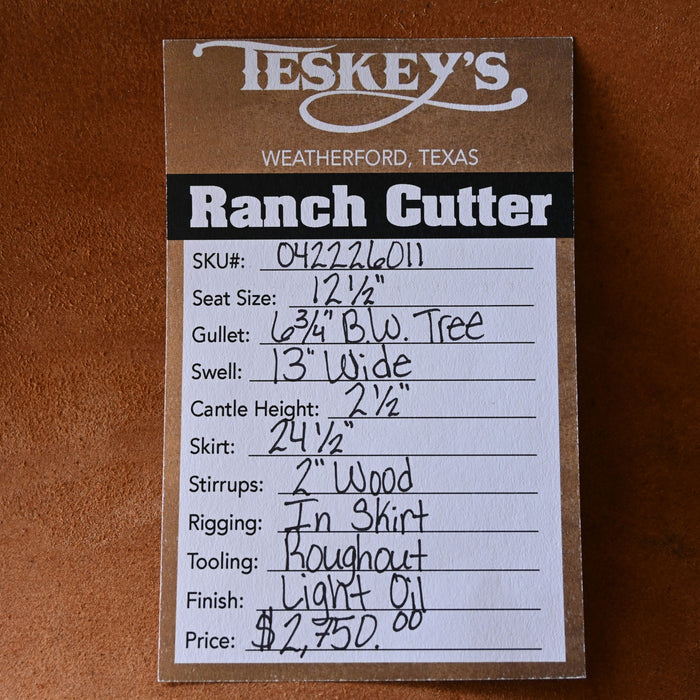 TESKEY'S
WEATHERFORD, TEXAS
Ranch Cutter
SKU#: 042226011
Seat Size: 12 1/2"
Gullet: 6 3/4" B.W. Tree
Swell: 13" Wide
Cantle Height: 2 1/2"
Skirt: 24 1/2"
Stirrups: 2" Wood
Rigging: In Skirt
Tooling: Roughout
Finish: Light Oil
Price: $2,750.00